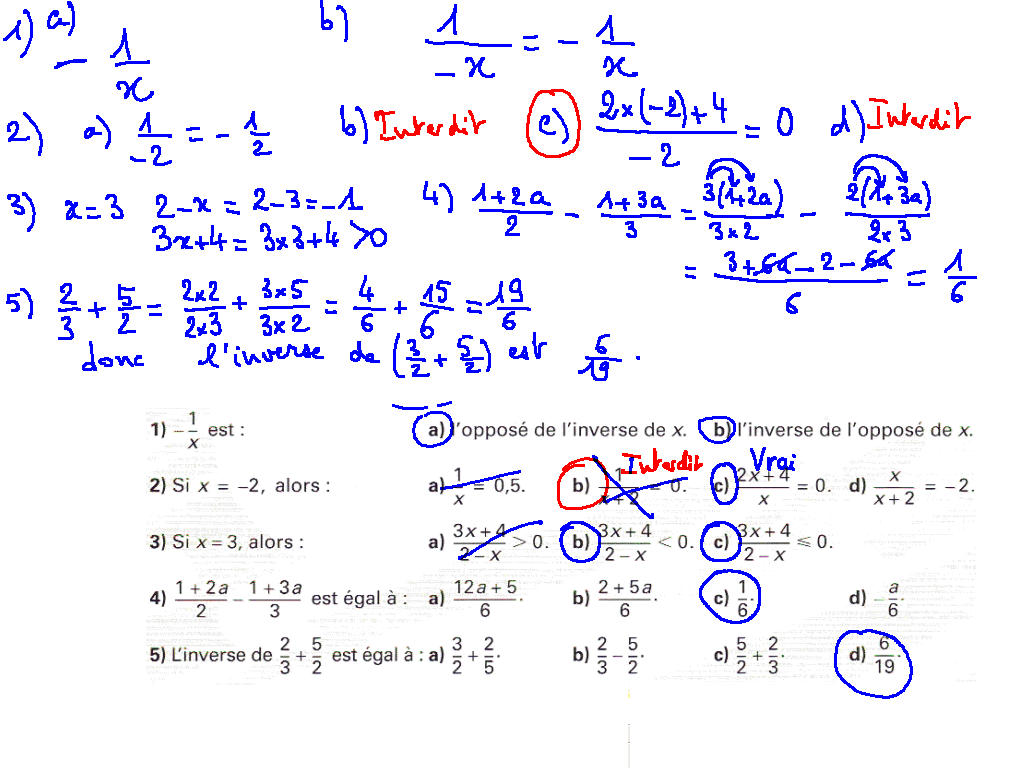 1) a) - 1/x b) 1/-x = - 1/x
2) a) 1/-2 = - 1/2 b) Interdit c) (2×(-2)+4)/-2 = 0 d) Interdit
3) x = 3 2-x = 2-3 = -1 4) (1+2a)/2 - (1+3a)/3 = 3(1+2a)/(3×2) - 2(1+3a)/(2×3)
3x+4 = 3×3+4 > 0
= (3+6a-2-6a)/6 = 1/6
5) 2/3 + 5/2 = (2×2)/(2×3) + (3×5)/(3×2) = 4/6 + 15/6 = 19/6
donc l'inverse de (3/2 + 5/2) est 6/19.
1) -1/x est : a) l'opposé de l'inverse de x. b) l'inverse de l'opposé de x.
Interdit Vrai
2) Si x = -2, alors : a) 1/x = 0,5. b) 1/(x+2) = 0. c) (2x+4)/x = 0. d) x/(x+2) = -2.
3) Si x = 3, alors : a) (3x+4)/(2-x) > 0. b) (3x+4)/(2-x) < 0. c) (3x+4)/(2-x) ⩽ 0.
4) (1+2a)/2 - (1+3a)/3 est égal à : a) (12a+5)/6. b) (2+5a)/6. c) 1/6. d) -a/6.
5) L'inverse de 2/3 + 5/2 est égal à : a) 3/2 + 2/5. b) 2/3 - 5/2. c) 5/2 + 2/3. d) 6/19.